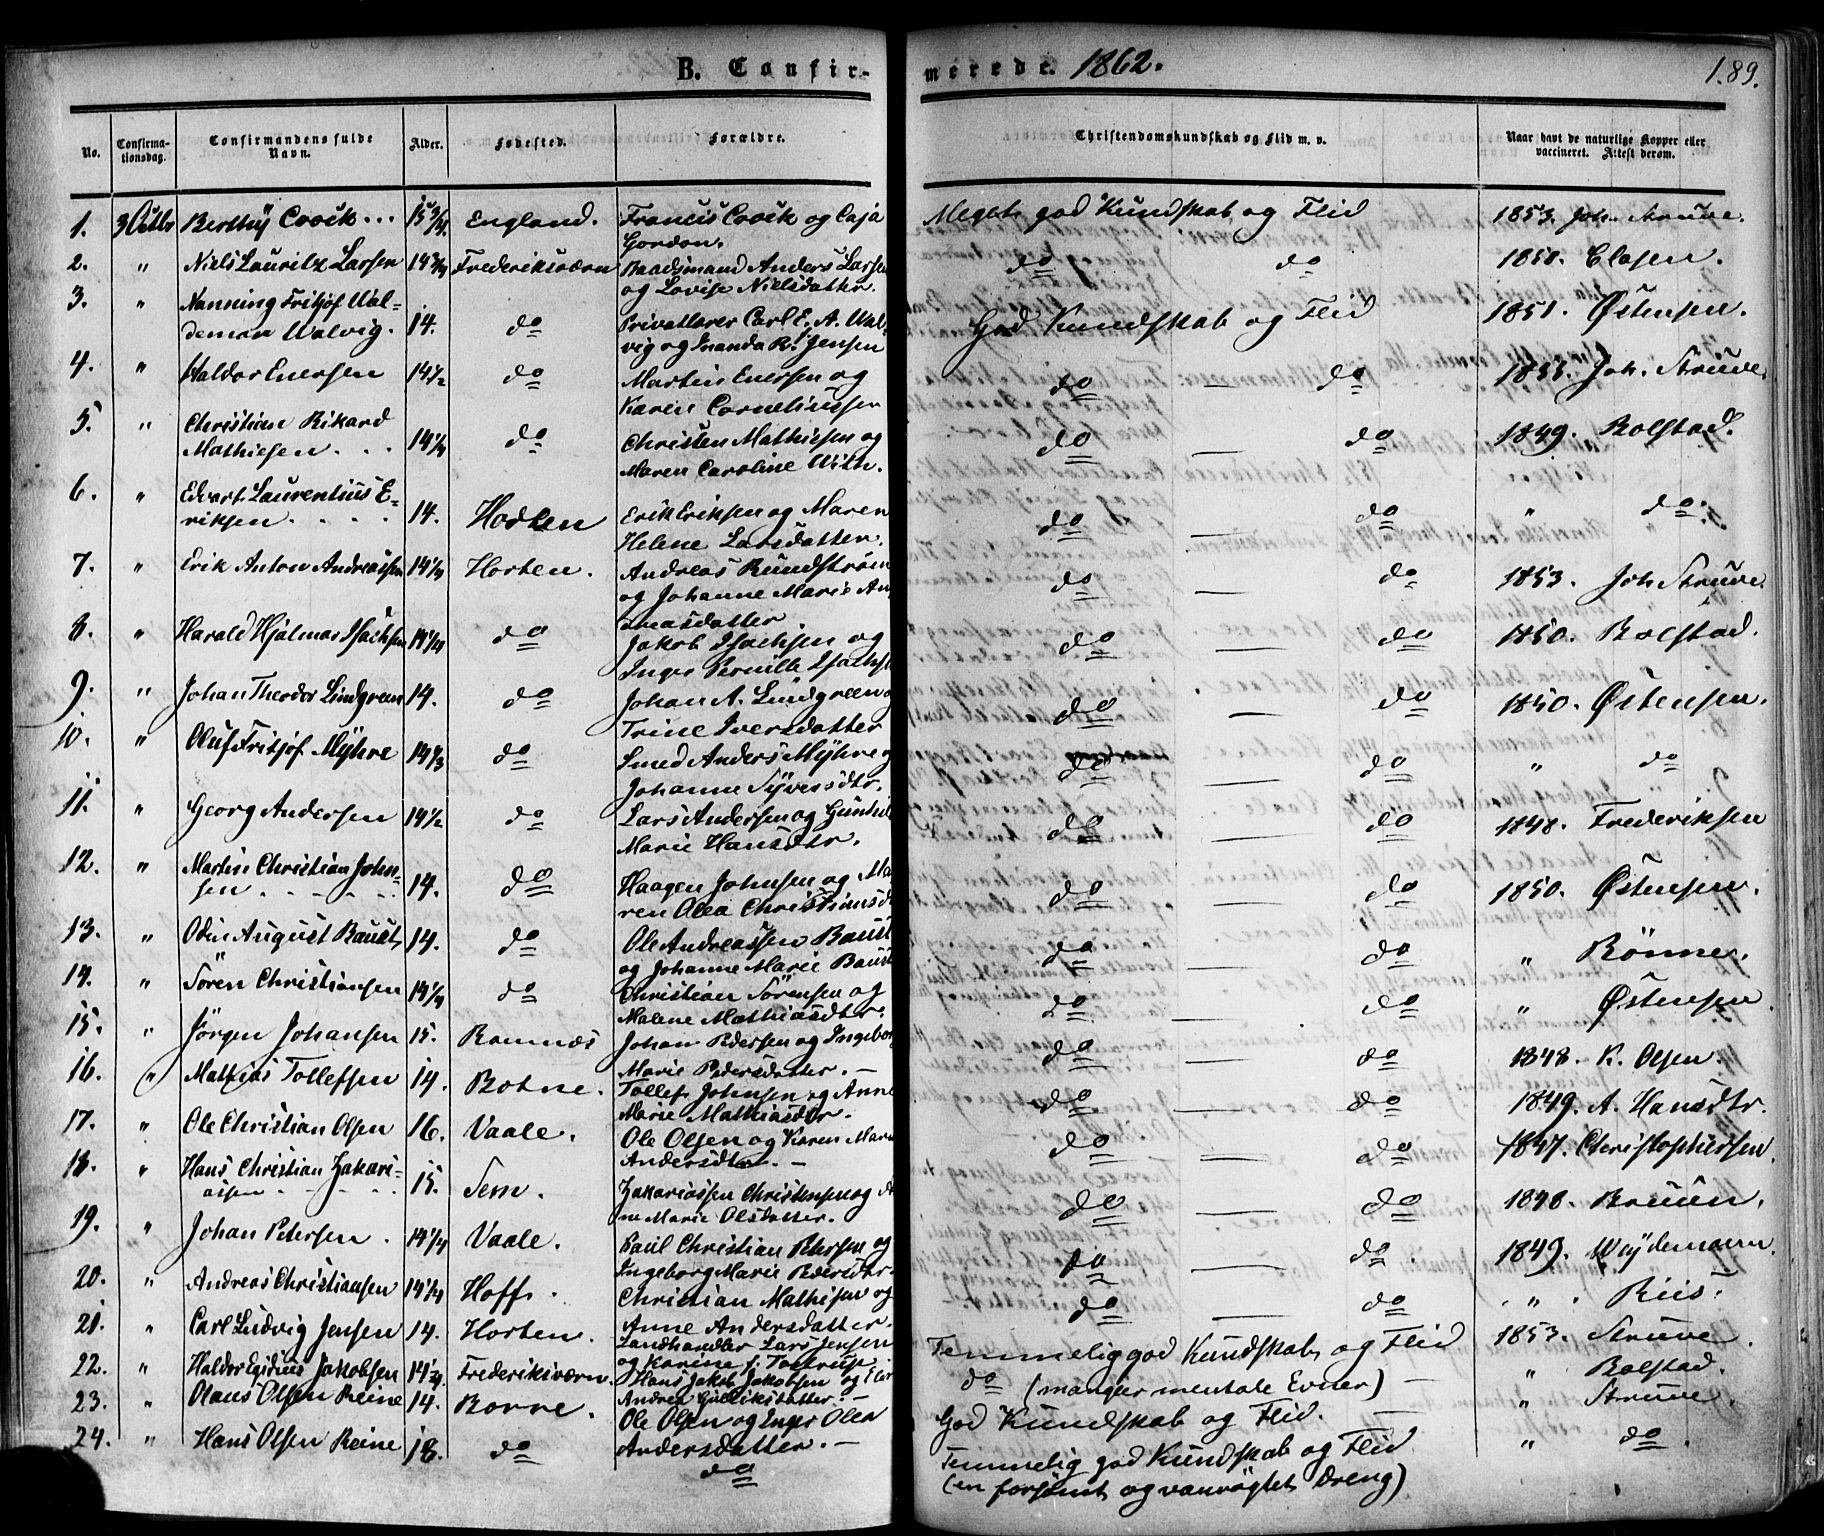 B. Confir-
merede. 1862.
189.
No.
Confirma-
tionsdag.
Confirmandens fulde
Navn.
Alder.
Fødested.
Forældre.
Christendomskundskab og Flid m. v.
Naar havt de naturlige Kopper eller
vaccineret. Attest derom.
1. 3 Octbr Berthy Coock 15 3/4. England. Francis Coock og Caja
Gordon.
Meget god Kundskab og Flid 1853. Joh. Struve.
2. " Niels Lauritz Larsen 14 3/4 Frederiksværn Baadsmand Anders Larsen
og Lovise Nielsdatter.
do do 1850. Clasen.
3. " Nanning Fritjof Wal-
demar Walvig. 14. do Privatlærer Carl E. A. Wal-
vig og Inanda R. Jensen
God Kundskab og Flid 1851. Østensen.
4. " Haldor Enersen 14 1/2 do Martin Enersen og
Karen Corneliussen
do — do 1855. Joh. Struve.
5. " Christian Rikard
Mathiesen . . 14 1/4 do Christen Mathiesen og
Maren Caroline With.
do — do 1849. Bolstad.
6. " Edvart Laurentius E-
riksen. . . . 14. Horten Erik Eriksen og Maren
Helene Larsdatter.
do — do " do
7. " Erik Anton Andreassen 14 1/4 Horten. Andreas Rundström
og Johanne Marie An-
dreasdatter
do do 1853. Joh Struve
8. " Harald Hjalmar Isachsen 14 1/4 do Jakob Isachsen og
Inger Pernille Isachs
do — do 1850. Bolstad.
9. " Johan Theodor Lindgreen 14. do Johan A. Lindgreen o
Trine Iversdatter
do — do 1850. Østensen.
10. " Oluf Fritjof Myhre 14 1/3 do Smed Anders Myhre o
Johanne Syversdtr.
do — do " do
11. " Georg Andersen 14 1/2 do Lars Andersen og Gunhil
Marie Hansdtr.
do — do 1848. Frederiksen
12. " Martin Christian John-
sen . . . . 14. do Haagen Johnsen og Ma
ren Olea Christiansd
do — do 1850. Østensen.
13. " Odin August Baust 14. do Ole Andreassen Baust
og Johanne Marie Baust
do — do " Rönne.
14. " Sören Christiansen 14 1/4 do Christian Sörensen og
Malene Mathiasdtr.
do — do " Østensen
15. " Jörgen Johansen 15. Ramnæs Johan Pedersen og Ingebor
Marie Pedersdatter. —
do — do 1848. K. Olsen.
16. " Mathias Tollefsen 14. Botne. Tollef Johnsen og Anne
Marie Mathiasdtr.
do — do 1849. A. Hansdtr.
17. " Ole Christian Olsen 16. Vaale. Ole Olsen og Karen Marie
Andersdtr. —
do — do 1847. Christophersen.
18. " Hans Christian Zakari-
assen . . . . 15. Sem. Zakariassen Christensen og A
ne Marie Olsdatter.
do — do 1848. Bruun.
19. " Johan Petersen . 14 1/4 Vaale. Paul Christian Petersen og
Ingeborg Marie Pedersdtr.
do — do 1849. Weydemann.
20. " Andreas Christiansen 14 1/4 Hoff. Christian Mathisen og
Anne Andersdatter.
do — do " Riis.
21. " Carl Ludvig Jensen 14. Horten. Landhandler Lars Jensen
og Karine f. Tostrup.
Temmelig god Kundskab og Flid 1853. Struve.
22. " Haldor Egidius Jakobsen 14 1/4 Frederiksværn. Hans Jakob Jakobsen og
Andrea Gulliksdatter. —
do (mangler mentale Evner) — " Bolstad.
23. " Olaus Olsen Reine 14. Borre. Ole Olsen og Inger Olea
Andersdatter. —
God Kundskab og Flid. — " Struve.
24. " Hans Olsen Reine 18. do do
Temmelig god Kundskab og Flid
(en forsömt og vanrögtet Dreng) " do.